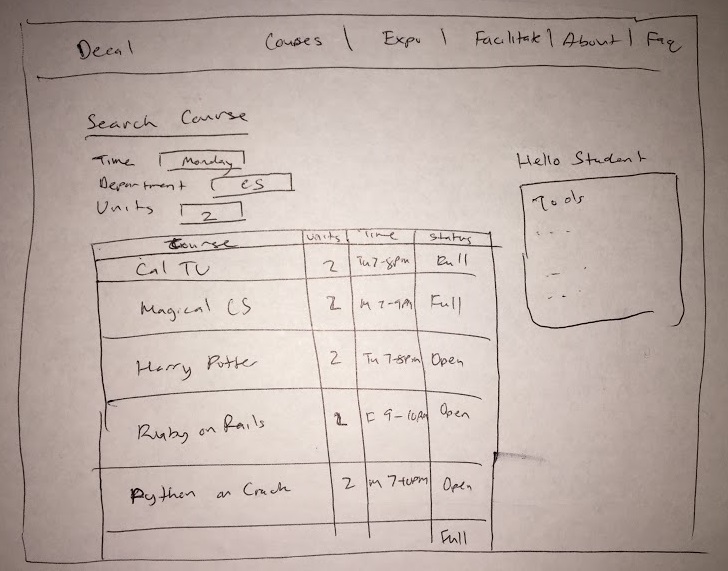 Decal Courses | Expo | Facilitate | About | Faq
Search Course
Time Monday
Department CS
Units 2
Hello Student
Tools
Course Units Time Status
Cal TV 2 Tu 7-8pm Full
Magical CS 2 M 7-9 Full
Harry Potter 2 Tu 7-8pm Open
Ruby on Rails 2 9-10 Open
Python on Crack 2 M 7-10pm Open
Full